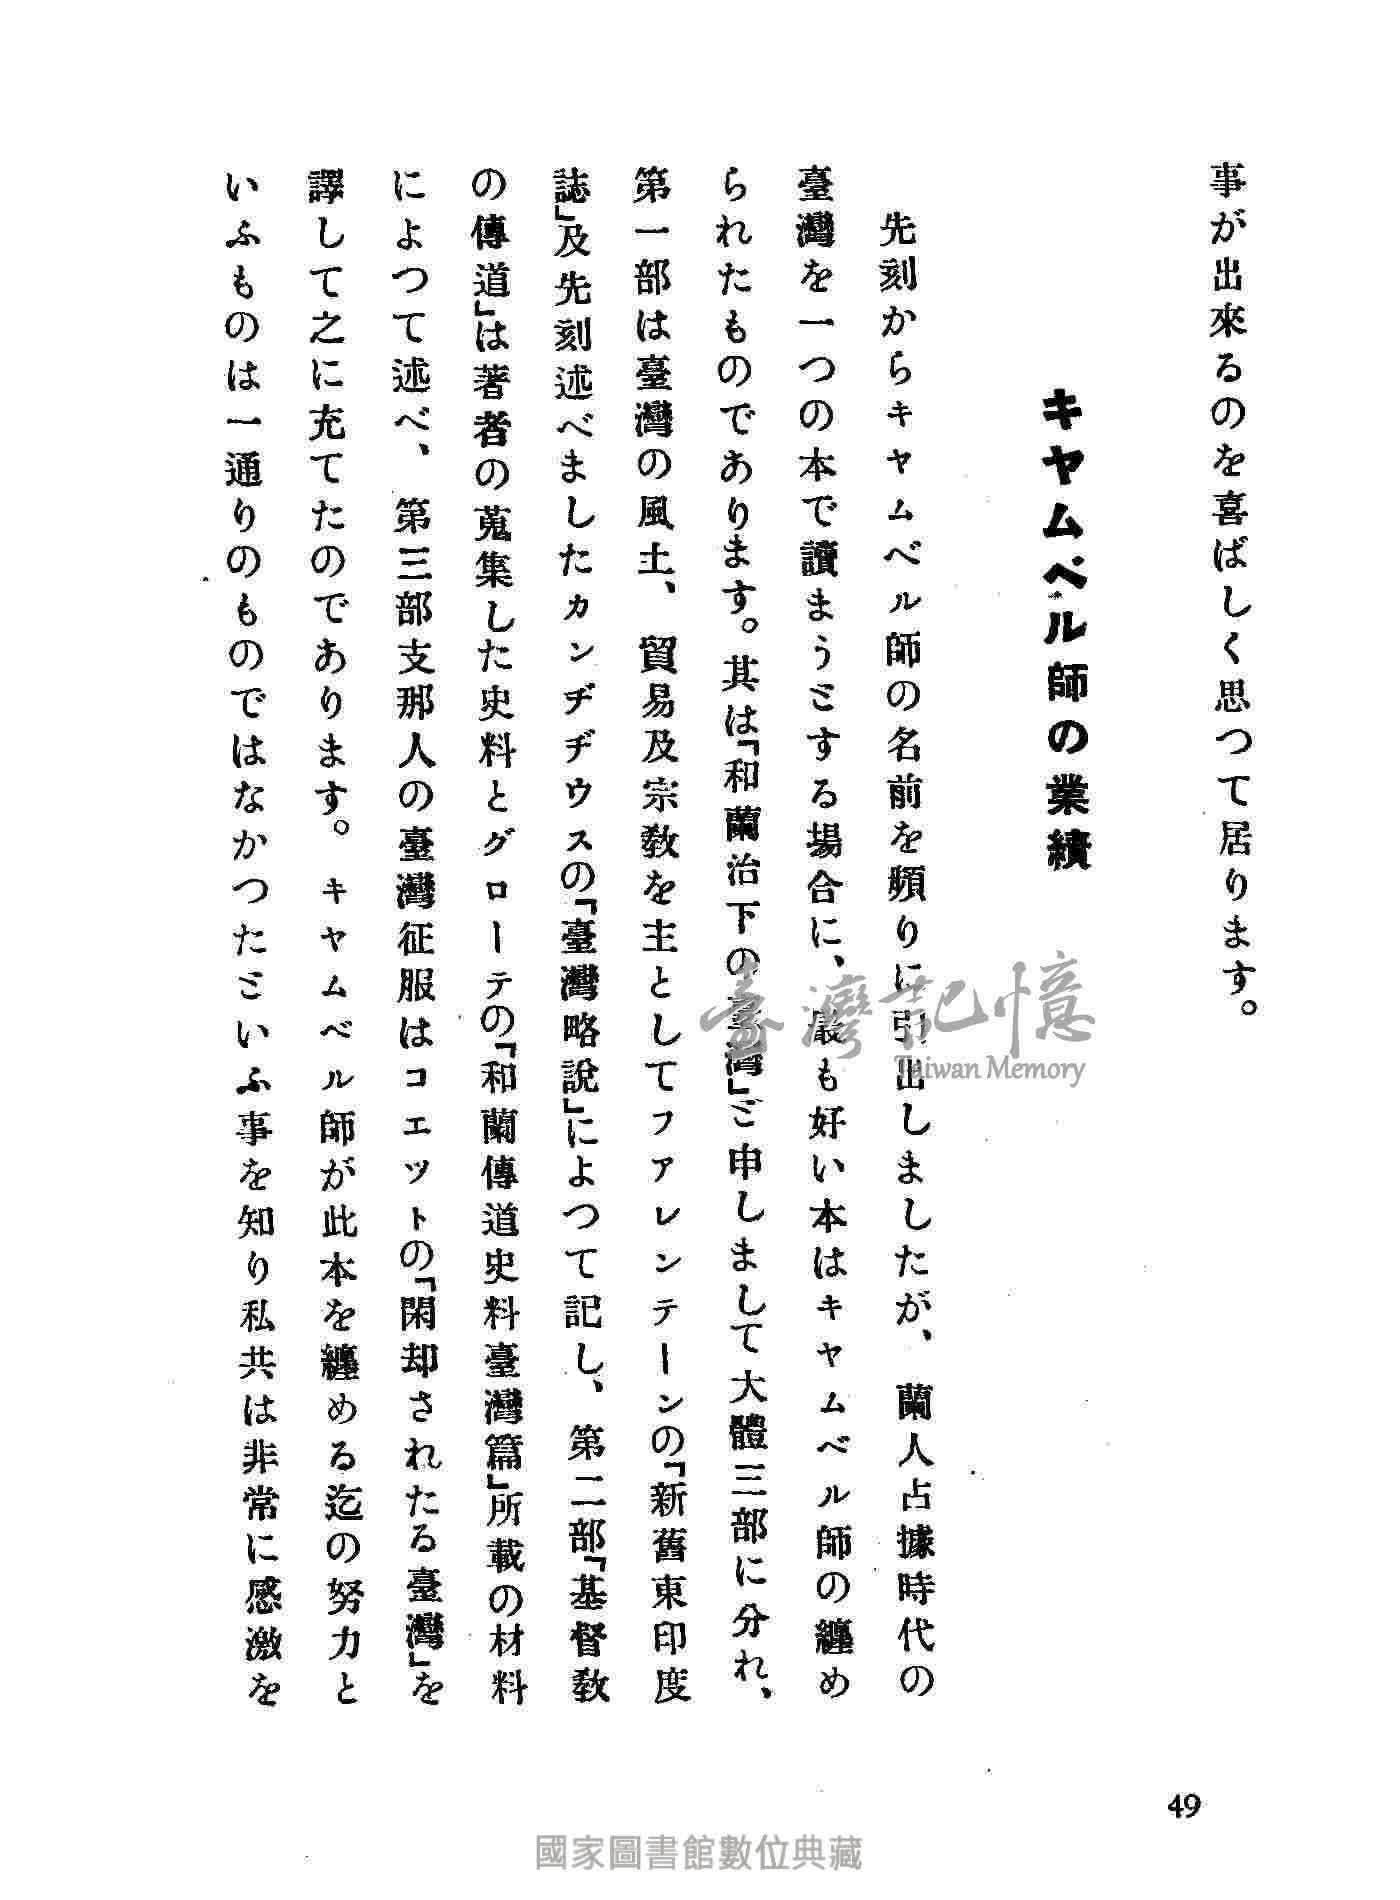 事が出來るのを喜ばしく思つて居ります。
キヤムベル師の業績
先刻からキヤムベル師の名前を頻りに引出しましたが、蘭人占據時代の
臺灣を一つの本で讀まうとする場合に、最も好い本はキヤムベル師の纏め
られたものであります。其は「和蘭治下の臺灣」と申しまして大體三部に分れ、
第一部は臺灣の風土、貿易及宗教を主としてフアレンテーンの「新舊東印度
誌」及先刻述べましたカンヂヂウスの「臺灣略說」によつて記し、第二部「基督教
の傳道」は著者の蒐集した史料とグローテの「和蘭傳道史料臺灣篇」所載の材料
によつて述べ、第三部支那人の臺灣征服はコエツトの「閑却されたる臺灣」を
譯して之に充てたのであります。キヤムベル師が此本を纏める迄の努力と
いふものは一通りのものではなかつたといふ事を知り私共は非常に感激を
臺灣記憶
Taiwan Memory
49
國家圖書館數位典藏